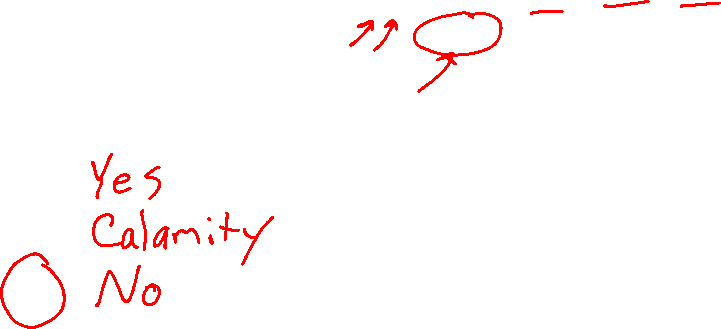 Yes
Calamity
No